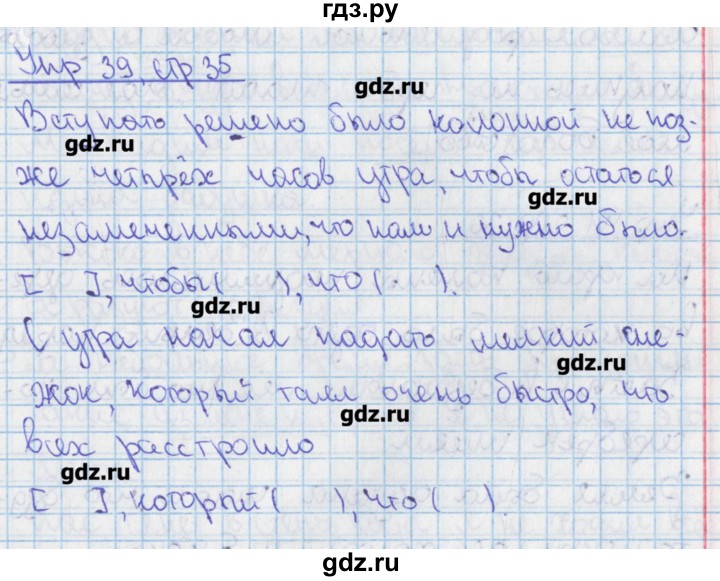 гдз.ру
Упр 39, стр 35
gdz.ru
Вступать решено было колонной не поз-
gdz.ru
же четырёх часов утра, чтобы остаться
gdz.ru
незамеченными, что нам и нужно было.
[ ], чтобы ( ), что ( ).
gdz.ru
С утра начал падать мелкий сне-
gdz.ru
жок, который таял очень быстро, что
gdz.ru
всех расстроило
gdz.ru
[ ], который ( ), что ( ).
gdz.ru